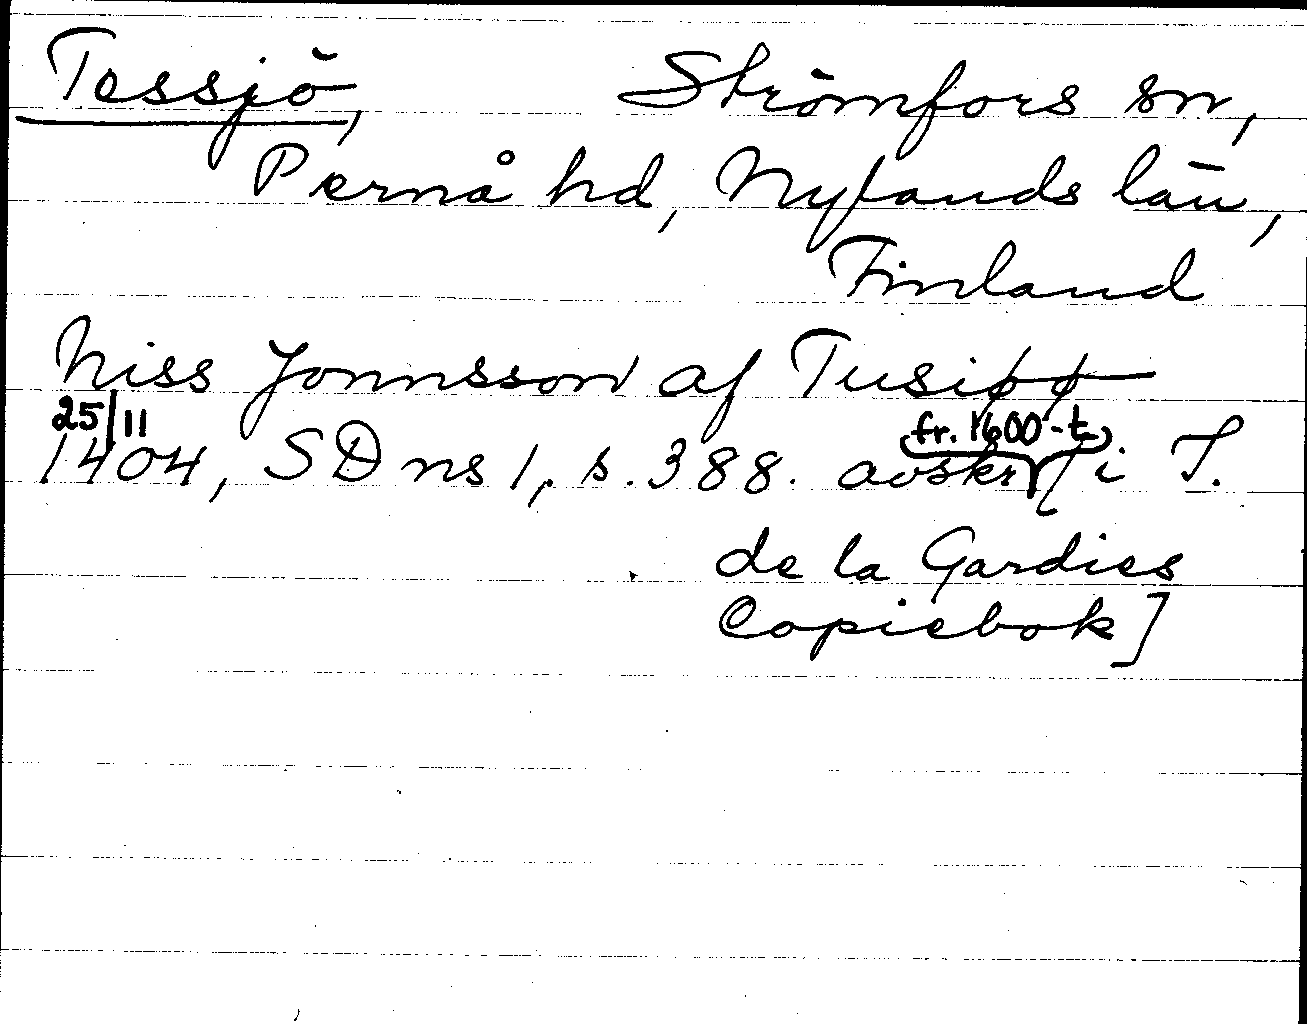 Tessjö, Strömfors sn,
Pernå hd, Nylands län,
Finland
Niss Jonnsson af Tusiøø
25/11
1404, SD ns 1, s. 388. avskr (fr. 1600-t) [i J.
de la Gardies
Copiebok]